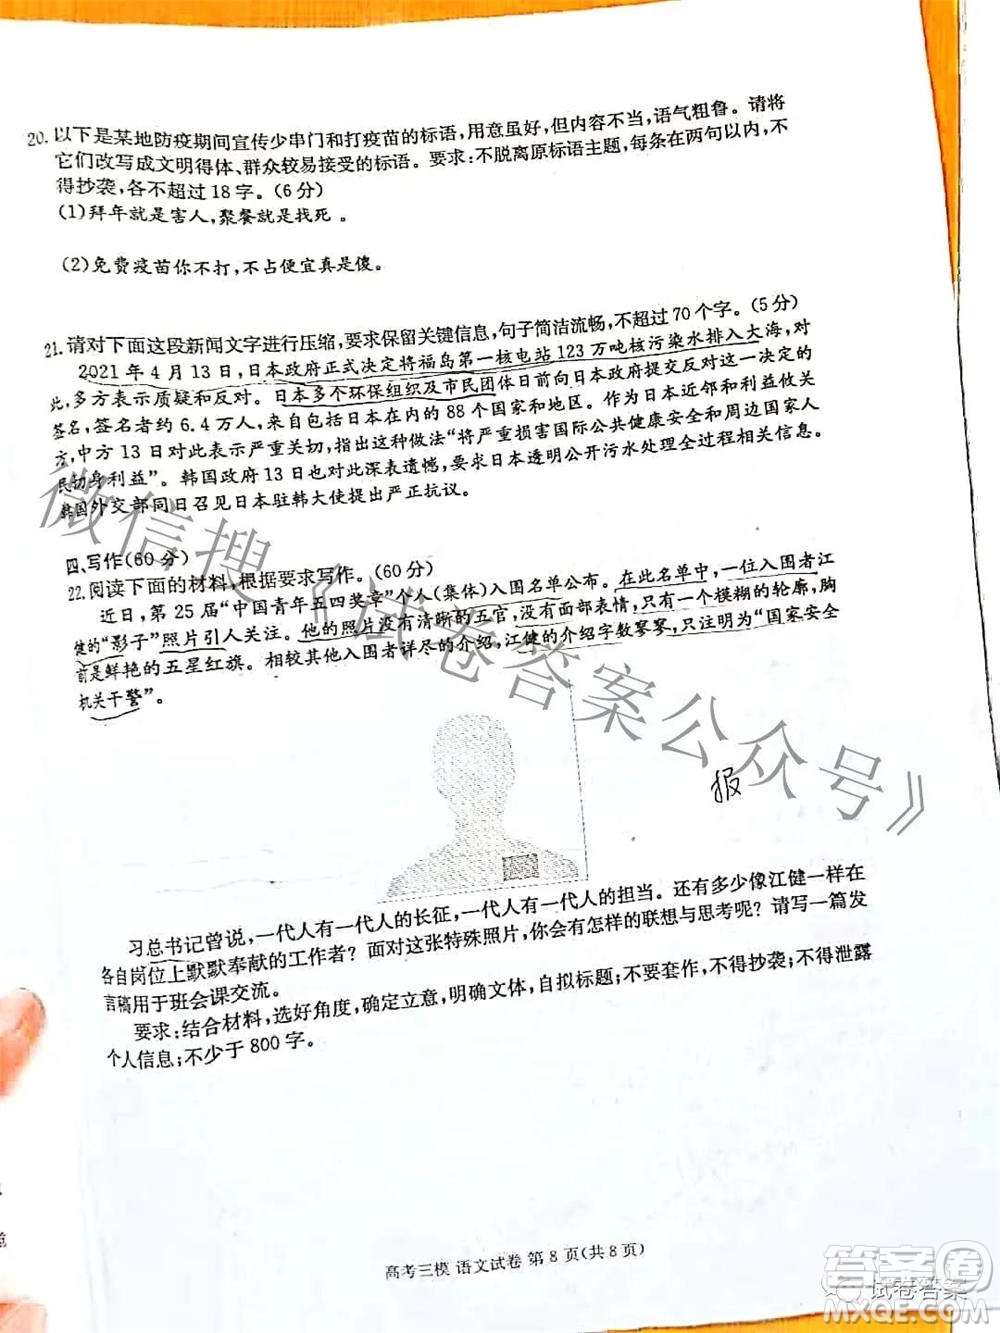 20. 以下是某地防疫期间宣传少串门和打疫苗的标语,用意虽好,但内容不当,语气粗鲁。请将
它们改写成文明得体、群众较易接受的标语。要求:不脱离原标语主题,每条在两句以内,不
得抄袭,各不超过18字。(6分)
(1)拜年就是害人,聚餐就是找死。
(2)免费疫苗你不打,不占便宜真是傻。
21. 请对下面这段新闻文字进行压缩,要求保留关键信息,句子简洁流畅,不超过70个字。(5分)
2021年4月13日,日本政府正式决定将福岛第一核电站123万吨核污染水排入大海,对
此,多方表示质疑和反对。日本多个环保组织及市民团体日前向日本政府提交反对这一决定的
签名,签名者约6.4万人,来自包括日本在内的88个国家和地区。作为日本近邻和利益攸关
方,中方13日对此表示严重关切,指出这种做法“将严重损害国际公共健康安全和周边国家人
民切身利益”。韩国政府13日也对此深表遗憾,要求日本透明公开污水处理全过程相关信息。
韩国外交部同日召见日本驻韩大使提出严正抗议。
四、写作(60分)
22. 阅读下面的材料,根据要求写作。(60分)
近日,第25届“中国青年五四奖章”个人(集体)入围名单公布。在此名单中,一位入围者江
健的“影子”照片引人关注。他的照片没有清晰的五官,没有面部表情,只有一个模糊的轮廓,胸
前是鲜艳的五星红旗。相较其他入围者详尽的介绍,江健的介绍字数寥寥,只注明为“国家安全
机关干警”。
报
习总书记曾说,一代人有一代人的长征,一代人有一代人的担当。还有多少像江健一样在
各自岗位上默默奉献的工作者?面对这张特殊照片,你会有怎样的联想与思考呢?请写一篇发
言稿用于班会课交流。
要求:结合材料,选好角度,确定立意,明确文体,自拟标题;不要套作,不得抄袭;不得泄露
个人信息;不少于800字。
高考三模 语文试卷 第8页(共8页)
微信搜《试卷答案公众号》
试卷答案
答案圈
MXQE.COM